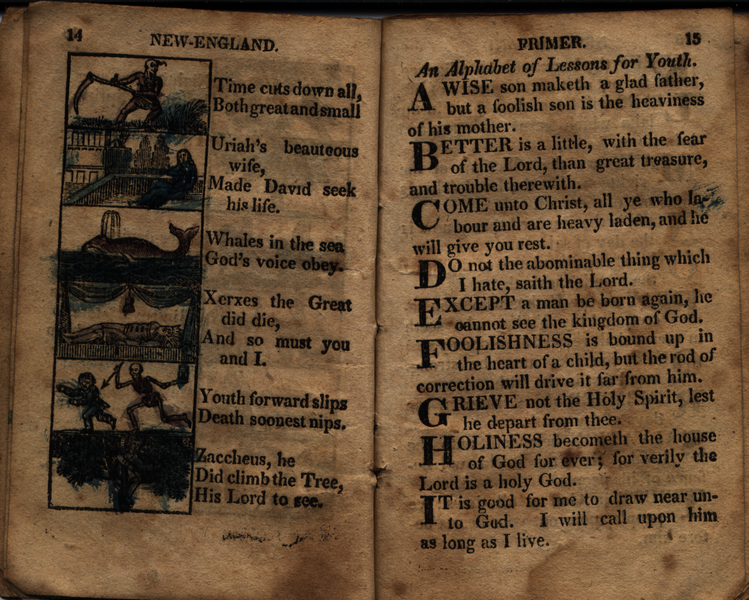 14
NEW-ENGLAND.
Time cuts down all,
Both great and small
Uriah's beauteous
wife,
Made David seek
his life.
Whales in the sea
God's voice obey.
Xerxes the Great
did die,
And so must you
and I.
Youth forward slips
Death soonest nips.
Zaccheus, he
Did climb the Tree,
His Lord to see.
PRIMER.
15
An Alphabet of Lessons for Youth.
A WISE son maketh a glad father,
but a foolish son is the heaviness
of his mother.
BETTER is a little, with the fear
of the Lord, than great treasure,
and trouble therewith.
COME unto Christ, all ye who la-
bour and are heavy laden, and he
will give you rest.
DO not the abominable thing which
I hate, saith the Lord.
EXCEPT a man be born again, he
cannot see the kingdom of God.
FOOLISHNESS is bound up in
the heart of a child, but the rod of
correction will drive it far from him.
GRIEVE not the Holy Spirit, lest
he depart from thee.
HOLINESS becometh the house
of God for ever; for verily the
Lord is a holy God.
IT is good for me to draw near un-
to God. I will call upon him
as long as I live.